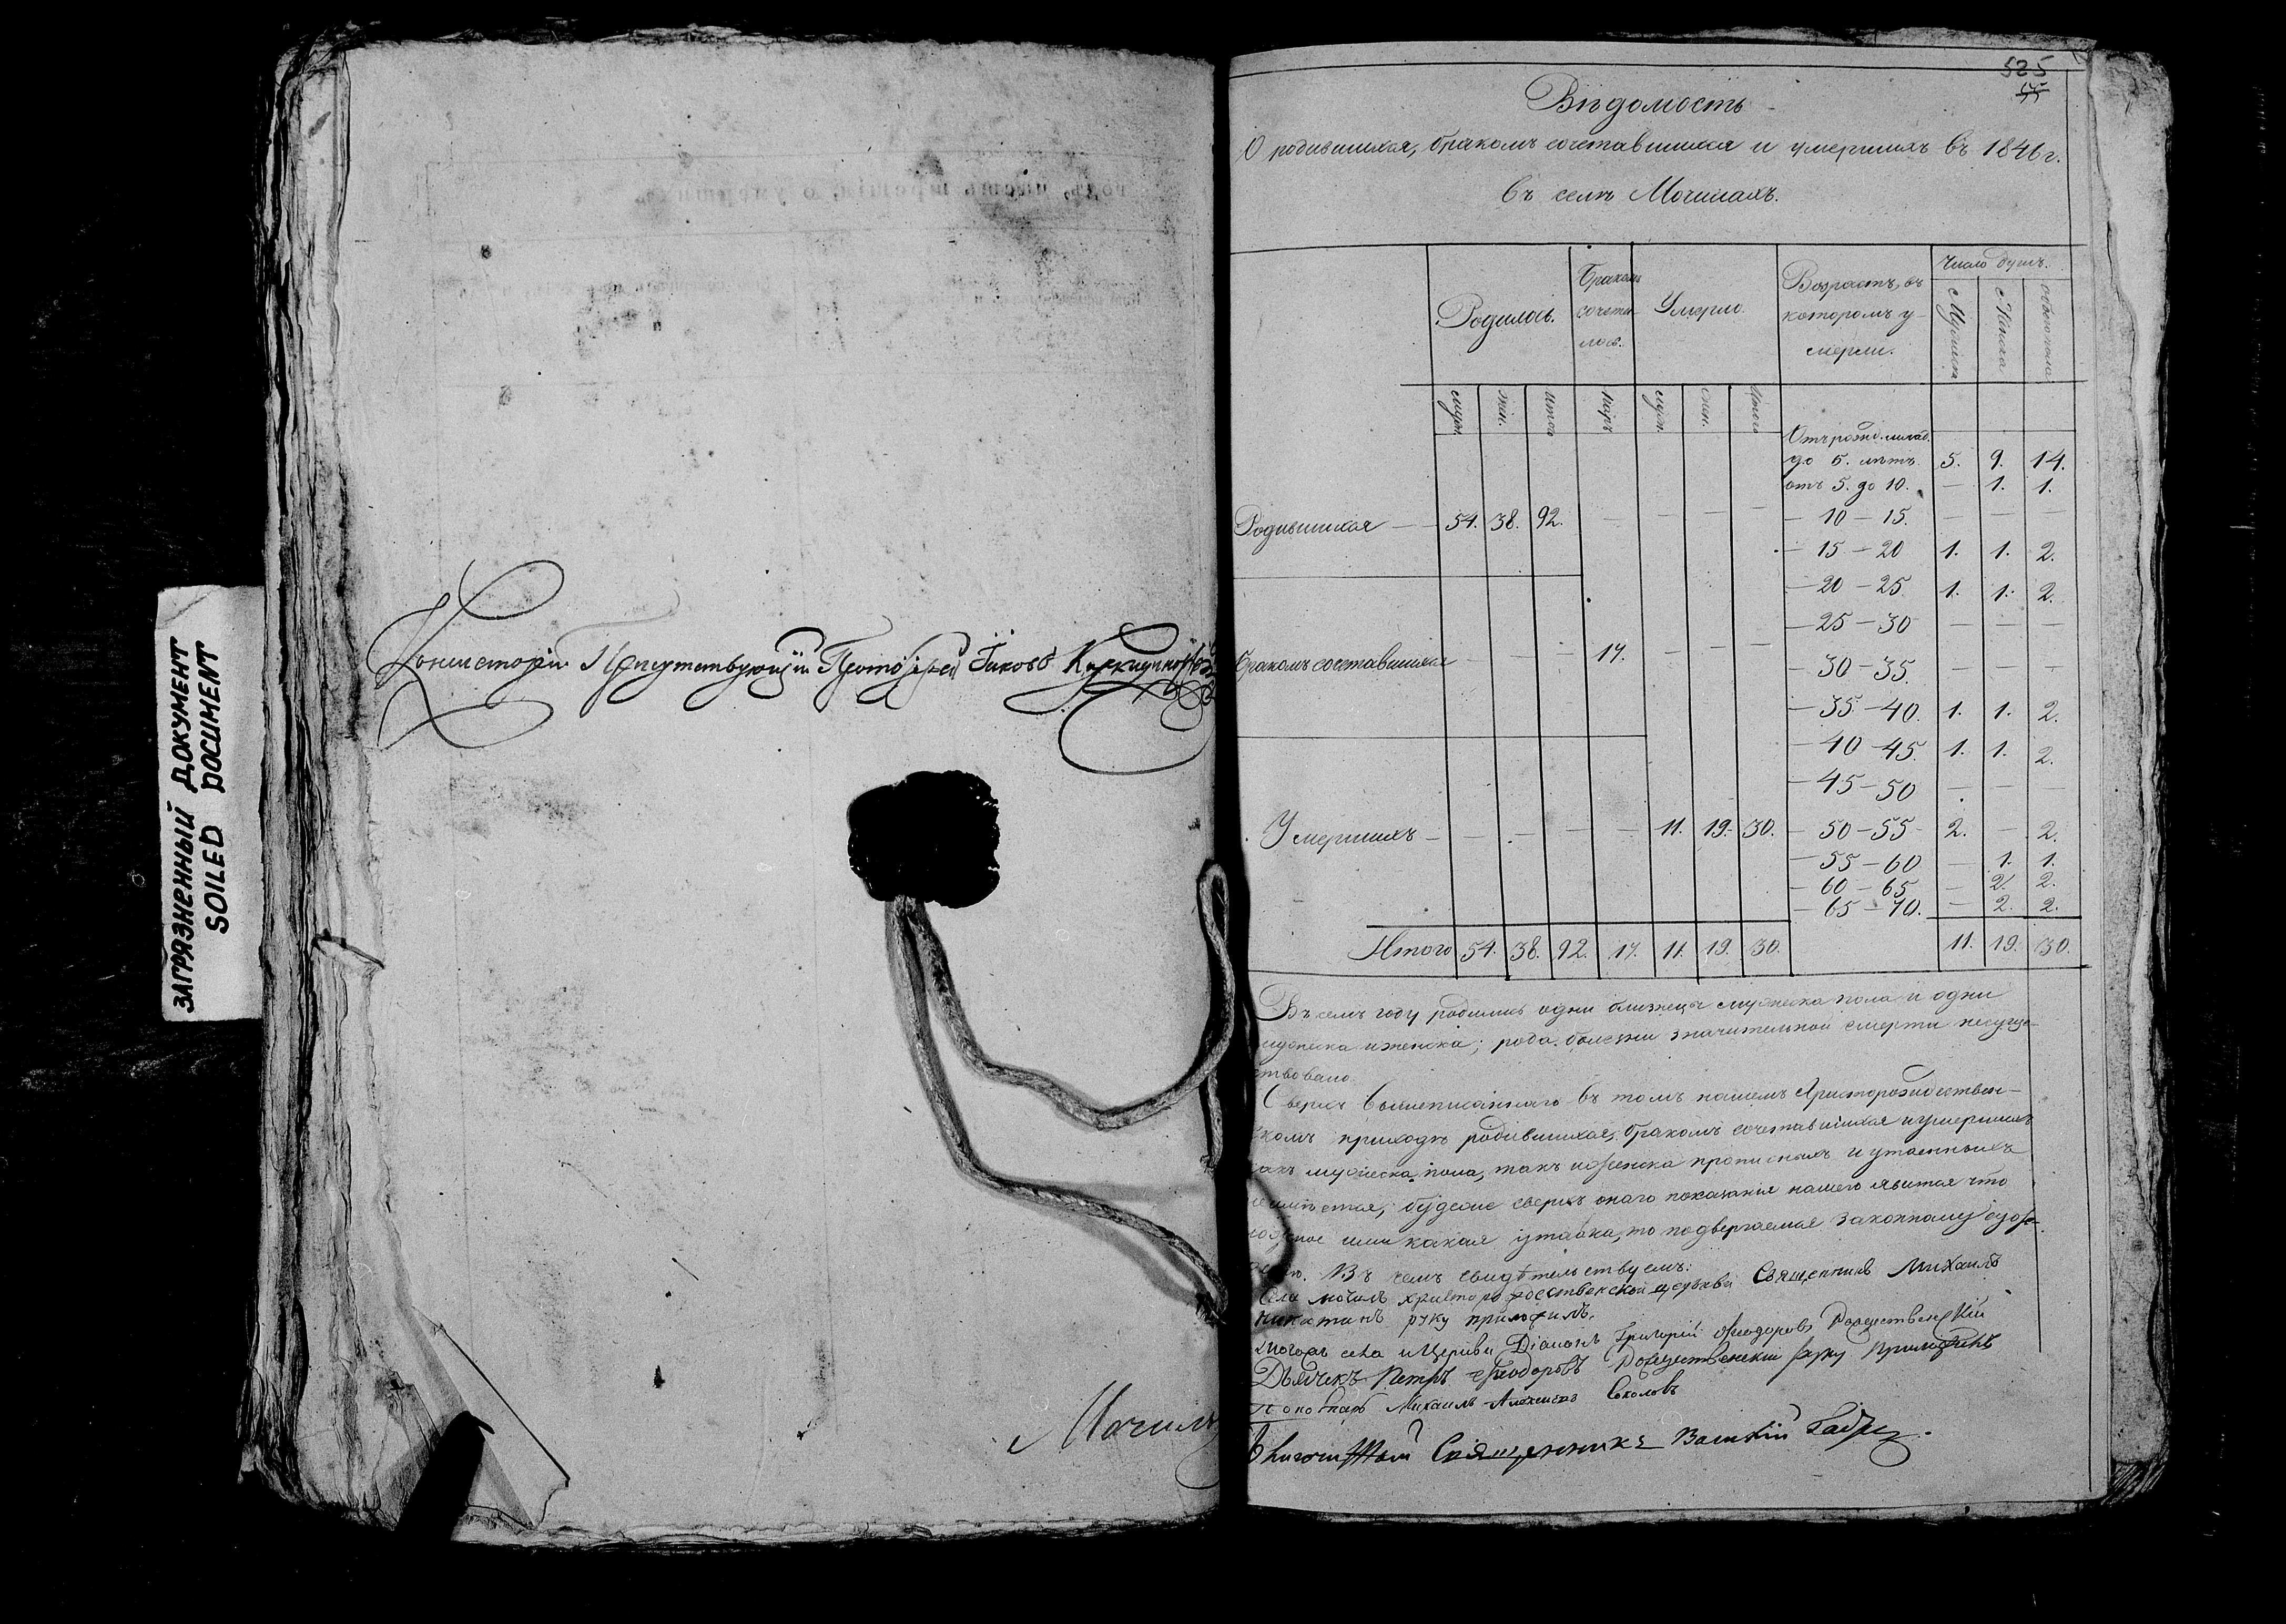 ЗАГРЯЗНЕННЫЙ ДОКУМЕНТ
SOILED DOCUMENT
Консисторіи Присутствующій Протоіерей Іаковъ
Мочилъ
525
Вѣдомость
О родившихся, бракомъ сочетавшихся и умершихъ въ 1846 г.
въ селѣ Мочилахъ.
Родилось.
Бракомъ сочета-лось.
Умерло.
Возрастъ, въ которомъ у-мерли.
Число душъ.
Мужеска
Женска
обоего пола
муж. жен. итого паръ муж. жен. Итого
Отъ рожд. млад.
до 5. лѣтъ. 5. 9. 14.
отъ 5. до 10. — 1. 1.
Родившихся — 54. 38. 92. — — — —
— 10 — 15. — — —
— 15 — 20 1. 1. 2.
— 20 — 25. 1. 1. 2.
— 25 — 30 — — —
Бракомъ сочетавшихся — — — 17. — — —
— 30 — 35. — — —
— 35 — 40. 1. 1. 2.
— 40 — 45. 1. 1. 2.
— 45 — 50 — — —
Умершихъ — — — — — 11. 19. 30.
— 50 — 55 2. — 2.
— 55 — 60 — 1. 1.
— 60 — 65 — 2. 2.
— 65 — 70. — 2. 2.
Итого 54. 38. 92. 17. 11. 19. 30. 11. 19. 30.
Въ семъ году родились одни близнецы мужеска пола и одни
мужеска и женска; рода болѣзни значительной смерти несуще-
ствовало
Сверхъ вышеписаннаго въ томъ нашемъ Христорождествен-
скомъ приходѣ родившихся, бракомъ сочетавшихся и умершихъ
какъ мужеска пола, такъ и женска прописныхъ и утаенныхъ
неимѣется, буде же сверхъ онаго показанія нашего явится что
ложное или какая утайка, то подвергаемся законному сужде-
нію. Въ чемъ свидѣтельствуемъ:
Села Мочилъ Христорождественской церкви Священникъ Михаилъ
Никитинъ руку приложилъ.
тогожъ села и Церкви Діаконъ Григорій Ѳеодоровъ Рождественскій
Дьячекъ Петръ Ѳеодоровъ Рождественскій руку приложилъ
Пономарь Михаилъ Алексѣевъ Соколовъ
Священникъ Василій